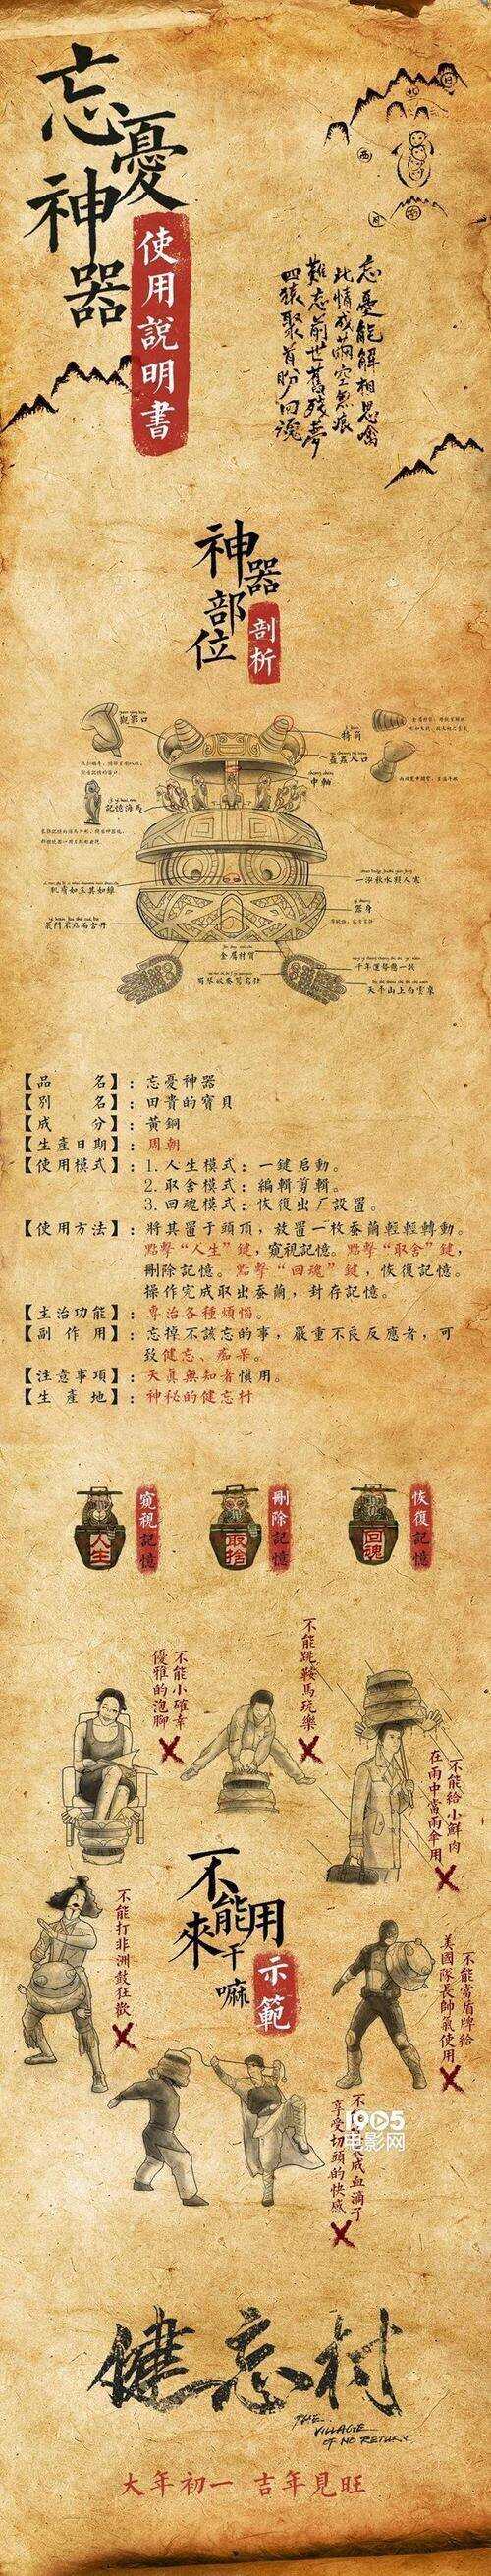 忘憂
神器
使用說明書
忘憂能解相思禽
此情成繭空愁痕
難忘前世舊殘夢
四猿聚首盼回魂
神器
部位
剖析
觀影口
犄角
蠶繭入口
中軸
記憶海馬
肌膚如玉其如緣
一泓秋水照人寒
器身
金屬材質
千年運勢懸一線
天平山上白雲泉
【品 名】:忘憂神器
【別 名】:田貴的寶貝
【成 分】:黃銅
【生產日期】:周朝
【使用模式】:1.人生模式:一鍵启動。
2.取舍模式:編輯剪輯。
3.回魂模式:恢復出厂設置。
【使用方法】:將其置于頭頂,放置一枚蚕繭輕輕轉動。
點擊“人生”鍵,窺視記憶。點擊“取舍”鍵,
刪除記憶。點擊“回魂”鍵,恢復記憶。
操作完成取出蚕繭,封存記憶。
【主治功能】:專治各種煩惱。
【副 作 用】:忘掉不該忘的事,嚴重不良反應者,可
致健忘、痴呆。
【注意事項】:天真無知者慎用。
【生 產 地】:神秘的健忘村
人生
窺視記憶
取捨
刪除記憶
回魂
恢復記憶
不能小確幸
優雅的泡腳
不能跳鞍馬玩樂
不能給小鮮肉
在雨中當雨傘用
不能用
來干嘛
示範
不能打非洲鼓狂歡
不能當盾牌給
美國隊長帥氣使用
成血滴子
享受切頭的快感
1905
电影网
健忘村
THE
VILLAGE
OF NO RETURN
大年初一 吉年見旺